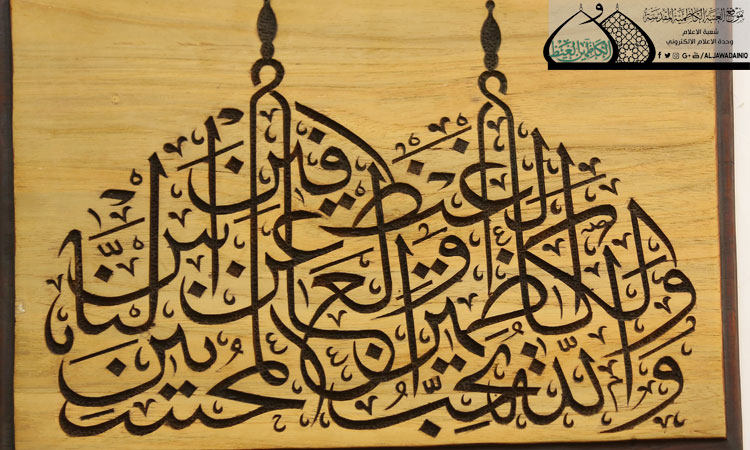 موقع العتبة الكاظمية المقدسة
شعبة الاعلام
وحدة الاعلام الالكتروني
/ALJAWADAINIQ
والكاظمين الغيظ
والكاظمين الغيظ والعافين عن الناس
والله يحب المحسنين